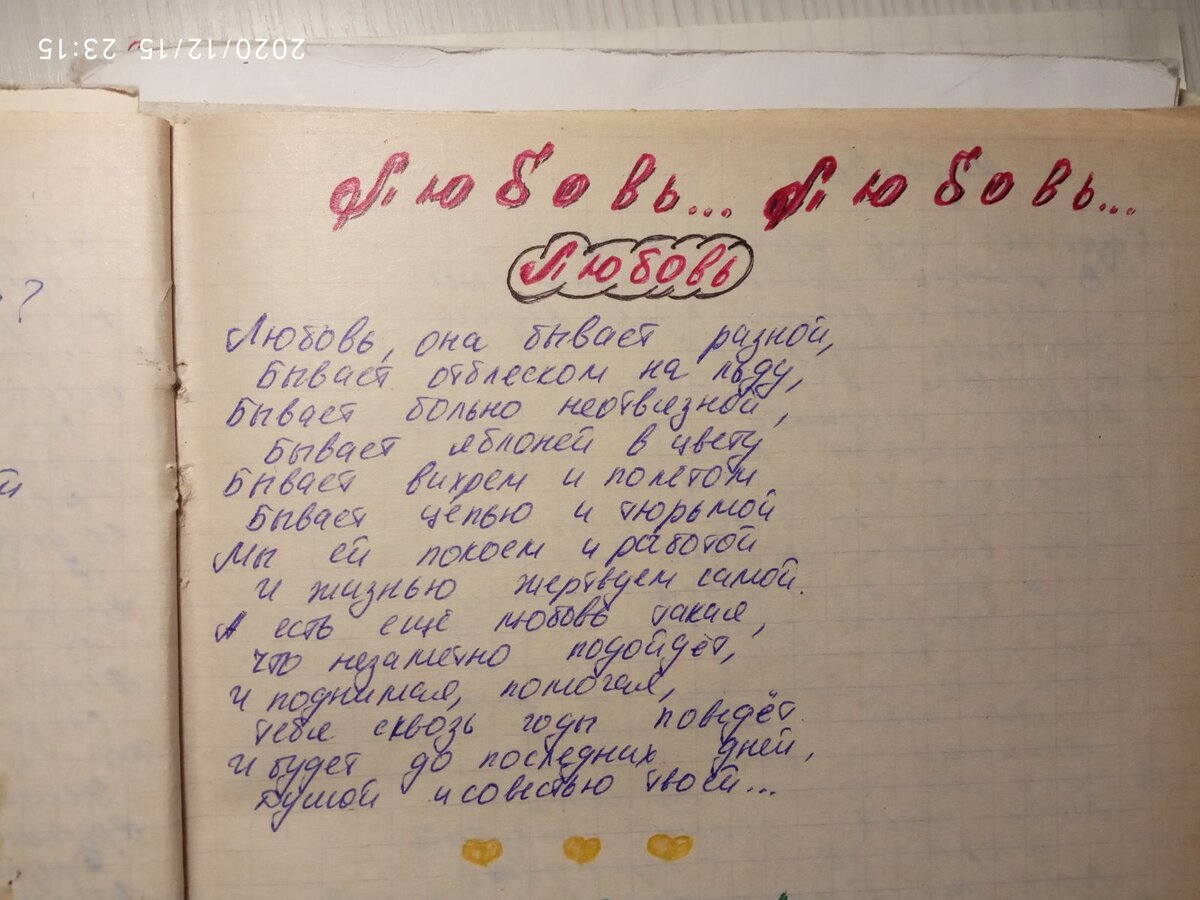 2020/12/15 23:15
Любовь... Любовь...
Любовь
Любовь, она бывает разной,
Бывает отблеском на льду,
Бывает больно неотвязной,
Бывает яблоней в цвету
Бывает вихрем и полётом
Бывает цепью и тюрьмой
Мы ей покоем и работой
И жизнью жертвуем самой.
А есть ещё любовь такая,
Что незаметно подойдёт,
И поднимая, помогая,
Тебя сквозь годы поведёт.
И будет до последних дней,
Душой и совестью твоей...
?
й